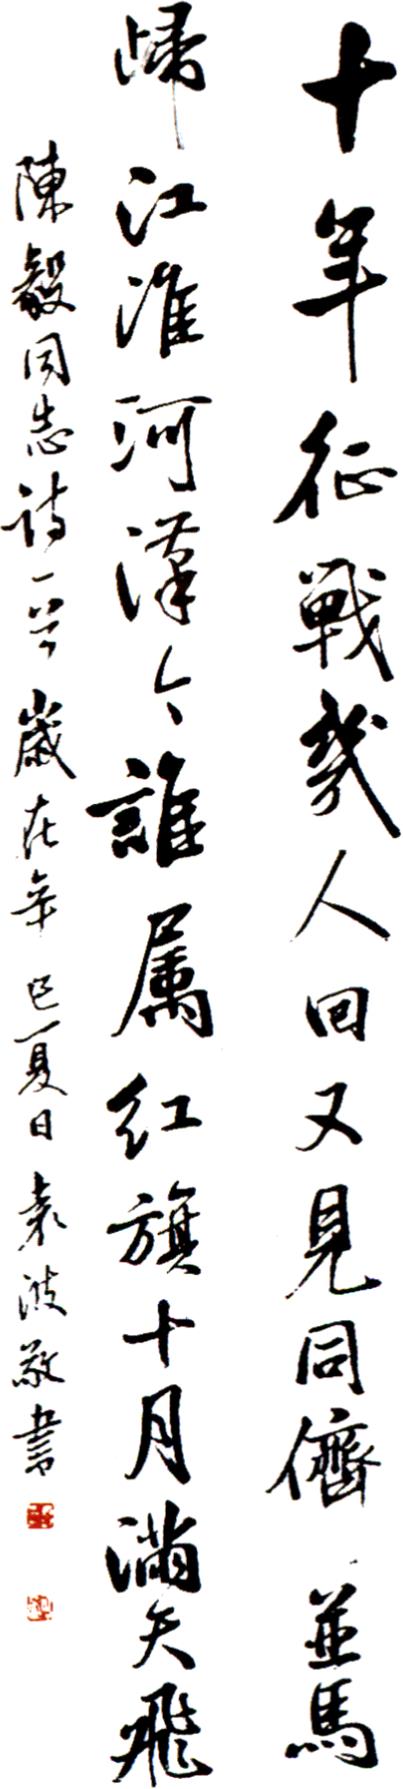 十年征戰幾人回又見同儕並馬
歸江淮河漢今誰属红旗十月滿天飛
陳毅同志詩一首歲在辛巳夏日袁波敬書